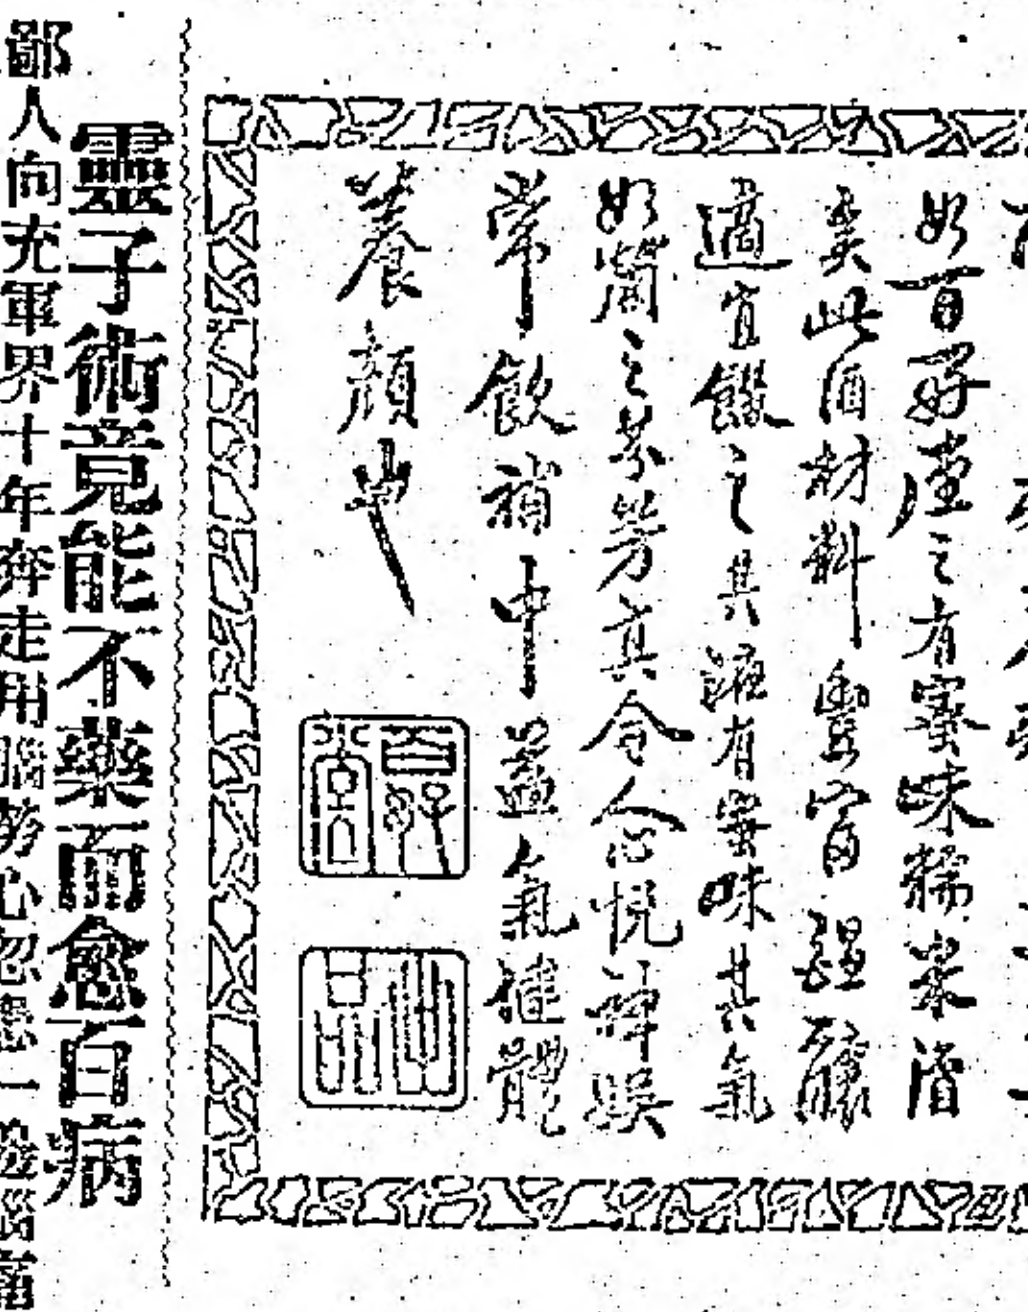 如百好堂之有蜜味糯米酒
矣此酒材料豐富醞釀
適宜餟之其液有蜜味其氣
如蘭之芬芳真令人心悅神
常飲補中益氣健體
養顏也
百好堂
靈子術竟能不藥而愈百病
鄙人向充軍界十年奔走用腦勞心忽患一